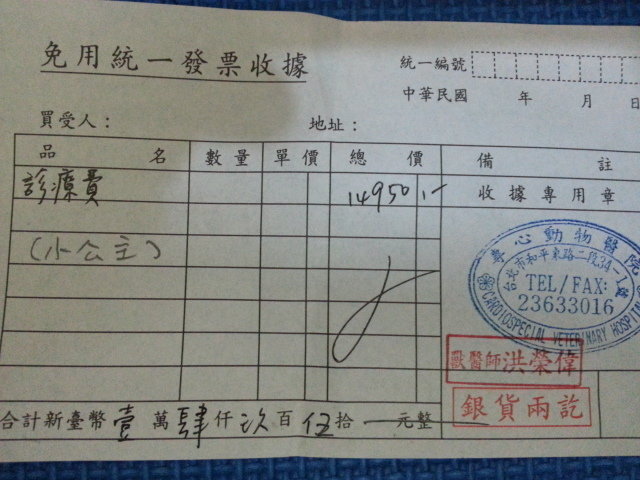 免用統一發票收據
統一編號
中華民國 年 月 日
買受人：
地址：
品名 數量 單價 總價 備註
診療費 14950.-
收據專用章
(小公主)
專心動物醫院
台北市和平東路二段34-1號
TEL/FAX:
23633016
CARDIOSPECIAL VETERINARY HOSPITAL
獸醫師洪榮偉
銀貨兩訖
合計新臺幣壹萬肆仟玖百伍拾一元整